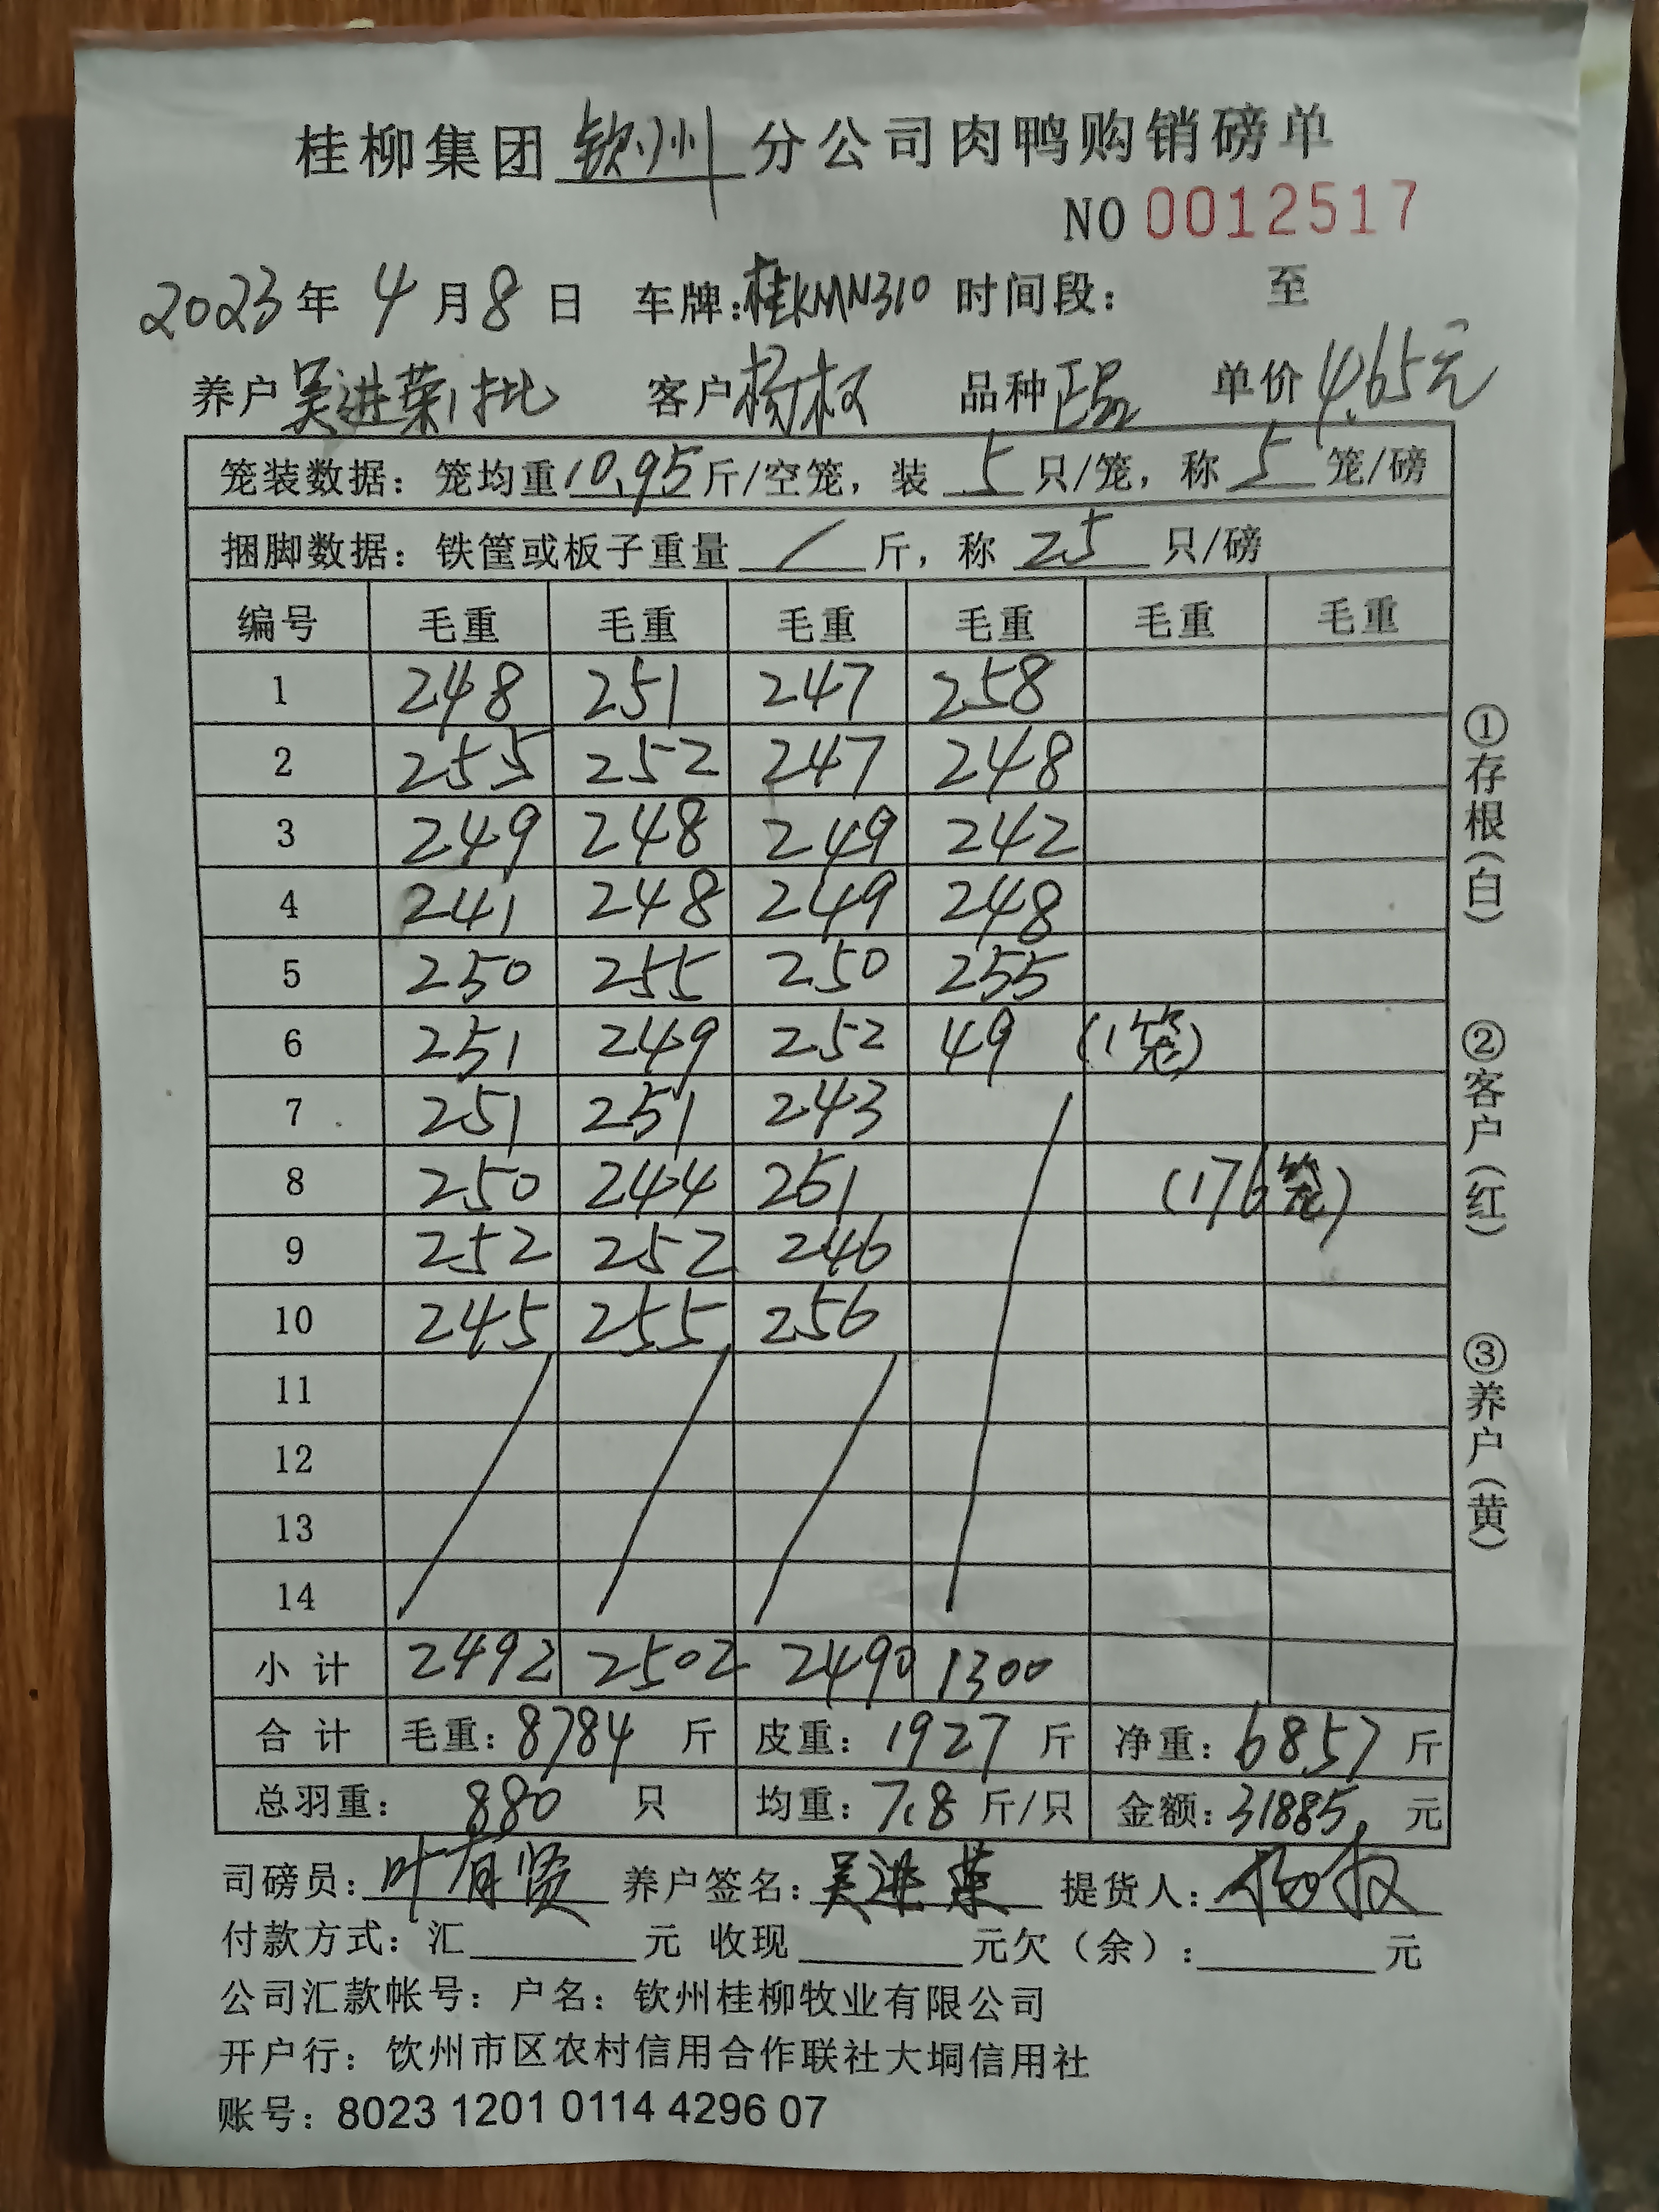 桂柳集团钦州分公司肉鸭购销磅单
NO 0012517
2023年4月8日 车牌:桂KMN310 时间段: 至
养户吴进荣1批 客户杨权 品种正品 单价4.65元
笼装数据: 笼均重10.95斤/空笼, 装5只/笼, 称5笼/磅
捆脚数据: 铁筐或板子重量/斤, 称25只/磅
编号 毛重 毛重 毛重 毛重 毛重 毛重
1 248 251 247 258
2 255 252 247 248
3 249 248 249 242
4 241 248 249 248
5 250 255 250 255
6 251 249 252 49 (1笼)
7 251 251 243
8 250 244 251 (176笼)
9 252 252 246
10 245 255 256
11
12
13
14
小计 2492 2502 2490 1300
合计 毛重: 8784 斤 皮重: 1927 斤 净重: 6857 斤
总羽重: 880 只 均重: 7.8 斤/只 金额: 31885. 元
司磅员: 叶有贤 养户签名: 吴进荣 提货人: 杨权
付款方式: 汇 元 收现 元欠(余): 元
公司汇款帐号: 户名: 钦州桂柳牧业有限公司
开户行: 钦州市区农村信用合作联社大垌信用社
账号: 8023 1201 0114 4296 07
①存根(白) ②客户(红) ③养户(黄)